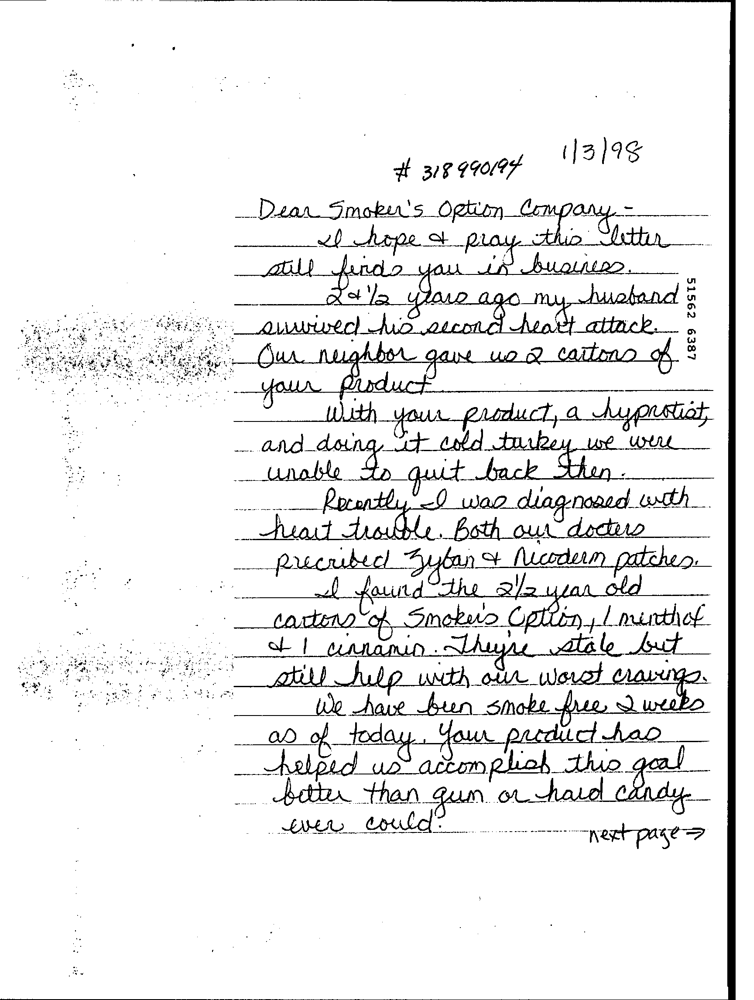 1/3/98
# 318990194
Dear Smoker's Option Company -
I hope & pray this letter
still finds you in business.
2 & 1/2 years ago my husband
survived his second heart attack.
Our neighbor gave us 2 cartons of
your product
With your product, a hypnotist,
and doing it cold turkey we were
unable to quit back then.
Recently I was diagnosed with
heart trouble. Both our docters
precribed Zyban & Nicoderm patches.
I found the 2 1/2 year old
cartons of Smoker's Option, 1 menthol
& 1 cinnamin. They're stale but
still help with our worst cravings.
We have been smoke free 2 weeks
as of today. Your product has
helped us accomplish this goal
better than gum or hard candy
ever could!
next page →
51562 6387